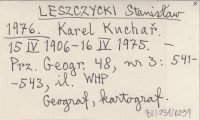 LESZCZYCKI Stanisław
1976. Karel Kuchař.
15 IV 1906-16 IV 1975. -
Prz. Geogr. 48, nr 3: 541-
-543, il. WHP
Geograf, kartograf.